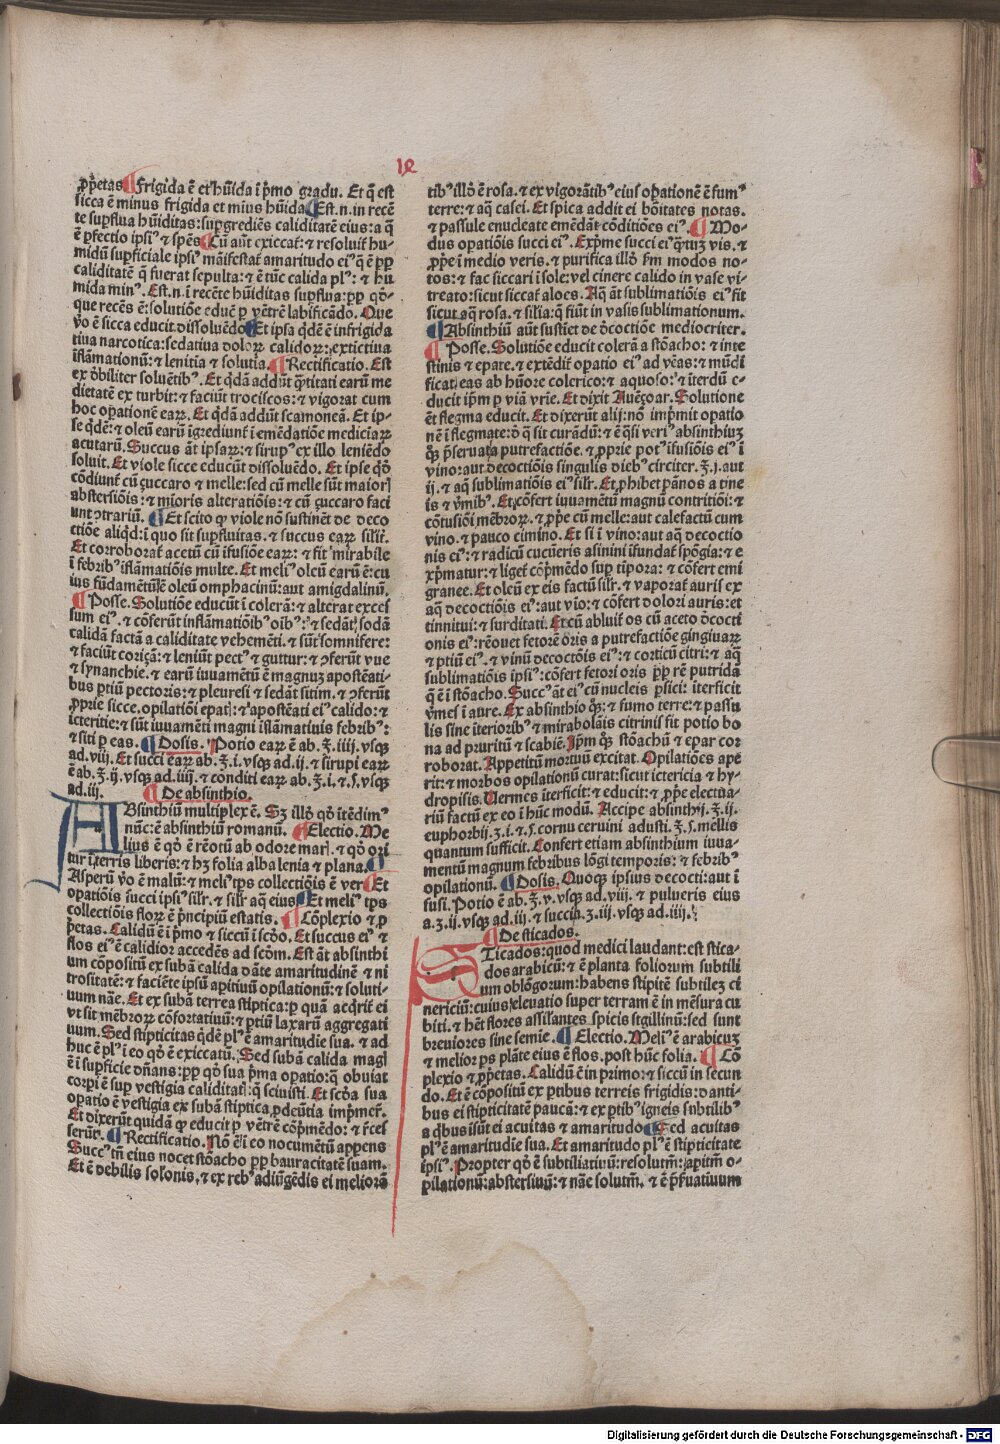 ꝓp̄etas ¶ Frigida ē et hūida ī p̄mo gradu. Et q̄ est
sicca ē minus frigida et miꝰ hūida ¶ Est.n.in recē
te suꝑflua hūiditas:suꝑgrediēs caliditatē eius:a q̄
ē ꝑfectio ipsiꝰ ⁊ spēs ¶ Cū aūt exiccat᷑:⁊ resoluit᷑ hu-
midū suꝑficiale ipsiꝰ māifestat᷑ amaritudo eiꝰ q̄ ē ꝓpꝑ
caliditatē q̄ fuerat sepulta:⁊ ē tūc calida plꝰ:⁊ hu
mida minꝰ. Est.n.ī recēte hūiditas suꝑflua:ꝓpꝑ qd̄-
que recēs ē:solutiōe educ̄ ꝑ vētrē labificādo. Que
v̄o ē sicca educit.dissoluēdo ¶ Et ipsa qd̄ē ē infrigida
tiua narcotica:sedatiua doloꝝ calidoꝝ:extictiua
īflāmationū:⁊ lenitia ⁊ solutia. ¶ Rectificatio. Est
ex d̄biliter soluētibꝰ. Et qd̄ā addūt q̄titati earū me
dietatē ex turbit:⁊ faciūt trociscos:⁊ vigorat cum
hoc oꝑationē eaꝝ. Et qd̄ā addūt scamoneā. Et ip-
se qd̄ē:⁊ oleū earū īgrediunt᷑ ī emēdatiōe mediciāꝝ
acutarū. Succus āt ipsaꝝ:⁊ sirupꝰ ex illo leniēdo
soluit. Et viole sicce educūt dissoluēdo. Et ipse qd̄
cōdiunt᷑ cū çuccaro ⁊ melle:sed cū melle sūt maior᷑
abstersiōis:⁊ mīoris alteratiōis:⁊ cū çuccaro faci
unt ꝯtrariū. ¶ Et scito ꝙ viole nō sustinēt de deco
ctiōe aliqd̄:ī quo sit suꝑfluitas. ⁊ succus eaꝝ silit᷑.
Et corroborat᷑ acetū cū īfusiōe eaꝝ:⁊ fit mirabile
ī febribꝰ īflāmatiōis multe. Et meliꝰ oleū earū ē:cu
ius fūdamētū ē oleū omphacinū:aut amigdalinū.
¶ Posse. Solutiōe educūt ī colerā:⁊ alterat exces
sum eiꝰ.⁊ cōferūt inflāmatiōibꝰ oībꝰ:⁊ sedāt sodā
calidā factā a caliditate vehemēti.⁊ sūt somnifere:
⁊ faciūt coriçā:⁊ leniūt pectꝰ ⁊ guttur:⁊ ꝯferūt vue
⁊ synanchie.⁊ earū iuuamētū ē magnuz apostēati-
bus ꝑtiū pectoris:⁊ pleuresi ⁊ sedāt sitim.⁊ ꝯferūt
ꝓprie sicce.opilatiōi epat᷑:⁊ apostēati eiꝰ calido:⁊
icteritie:⁊ sūt iuuamēti magni īflāmatiuis febribꝰ:
⁊ siti ꝑ eas. ¶ Dosis. Potio eaꝝ ē ab.ʒ.iiij.vsqꝫ
ad.viij. Et succi eaꝝ ab.ʒ.i.vsqꝫ ad.ij.⁊ sirupi eaꝝ
ē ab.ʒ.ij.vsqꝫ ad.iiij.⁊ conditi eaꝝ ab.ʒ.i.⁊.s.vsqꝫ
ad.iij. ¶ De absinthio.
ABsinthiū multiplex ē. Sꝫ illd̄ qd̄ ītēdimꝰ
nūc:ē absinthiū romanū. ¶ Electio. Me
lius ē qd̄ ē rēotū ab odore mar᷑.⁊ qd̄ ori
tur ī terris liberis:⁊ hꝫ folia alba lenia ⁊ plana. ¶
Asperū v̄o ē malū:⁊ meliꝰ tp̄s collectiōis ē ver ¶ Et
opatiōis succi ipsiꝰ silr᷑.⁊ silr᷑ aq̄ eius ¶ Et meliꝰ tp̄s
collectiōis floꝝ ē p̄ncipiū estatis. ¶ Cōplexio ⁊ ꝓ
p̄etas. Calidū ē ī p̄mo ⁊ siccū ī scd̄o. Et succus eiꝰ ⁊
flos eiꝰ ē calidior accedēs ad scd̄m. Est āt absinthi
um cōpositū ex subā calida dāte amaritudinē ⁊ ni
trositatē:⁊ faciēte ipsū apitiuū opilationū:⁊ soluti-
uum nāe. Et ex subā terrea stiptica:ꝑ quā acqrit᷑ ei
vt sit mēbroꝝ cōfortatiuū:⁊ ꝑtiū laxarū aggregati
uum. Sed stipticitas qd̄ē plꝰ ē amaritudīe sua.⁊ ad
huc ē plꝰ ī eo qd̄ ē exiccatū. Sed subā calida mag᷑
ē ī suꝑficie dn̄ans:ꝓpꝑ qd̄ sua p̄ma oꝑatio:q̄ obuiat
corpi ē suꝑ vestigia caliditat᷑:q̄ sciuisti. Et scd̄a sua
oꝑatio ē vestigia ex subā stiptica ꝓdcūtia imp̄mer᷑.
Et dixerūt quidā ꝙ educit ꝑ vētrē cōp̄mēdo:⁊ r̄ces
serūt. ¶ Rectificatio. Nō ē ī eo nocumētū appens
Succꝰ tn̄ eius nocet stōacho ꝓpꝑ bauracitatē suam.
Et ē debilis solonis.⁊ ex rebꝰ adiūgēdis ei meliorā
IX
tibꝰ illd̄ ē rosa.⁊ ex vigorātibꝰ eiuſ oꝑationē ē fumꝰ
terre:⁊ aq̄ casei. Et spica addit ei bōitates notas.
⁊ passule enucleate emēdāt cōditiōes eiꝰ. ¶ Mo-
dus opatiōis succi eiꝰ. Exp̄me succi eiꝰ q̄tuꝫ vis.⁊
ꝓp̄e ī medio veris.⁊ purifica illd̄ fm modos no-
tos:⁊ fac siccari ī sole:vel cinere calido in vase vi-
treato:sicut siccat᷑ aloes. Aq̄ āt sublimatiōis eiꝰ fit
sicut aq̄ rosa.⁊ silia:q̄ fiūt in vasis sublimationum.
¶ Absinthiū aūt sustiet de d̄coctiōe mediocriter.
¶ Posse. Solutiōe educit colerā a stōacho:⁊ inte
stinis ⁊ epate.⁊ extēdit᷑ opatio eiꝰ ad vēas:⁊ mūdi
ficat᷑ eas ab hūore colerico:⁊ aquoso:⁊ īterdū e-
ducit ip̄m ꝑ viā vrīe. Et dixit Auēçoar. Solutione
ēt flegma educit. Et dixerūt alij:nō imp̄mit opatio
nē ī flegmate:d̄ q̄ sit curādū:⁊ ē q̄si veriꝰ absinthiuꝫ
qd̄ p̄seruata putrefactiōe.⁊ ꝓprie potꝰ ifusiōis eiꝰ ī
vino:aut decoctiōis singulis diebꝰ circiter.ʒ.j.aut
ij.⁊ aq̄ sublimatiōis eiꝰ silr᷑. Et ꝓhibet pānos a tine
is ⁊ v̄mibꝰ. Et cōfert iuuamētū magnū contritiōi:⁊
cōtusiōi mēbroꝝ.⁊ ꝓp̄e cū melle:aut calefactū cum
vino.⁊ pauco cimino. Et si ī vino:aut aq̄ decoctio
nis eiꝰ:⁊ radicū cucūeris asinini īfundat᷑ spōgia:⁊ e
xp̄matur:⁊ liget᷑ cōp̄mēdo suꝑ tīpora:⁊ cōfert emi
granee. Et oleū ex eis factū silr᷑.⁊ vaporat᷑ auris ex
aq̄ decoctiōis eiꝰ:aut vīo:⁊ cōfert dolori auris:et
tinnitui:⁊ surditati. Et cū abluit᷑ os cū aceto d̄cocti
onis eiꝰ:rēouet fetorē oris a putrefactiōe gingiuaꝝ
⁊ ꝑtiū eiꝰ.⁊ vinū decoctōis eiꝰ:⁊ corticū citri:⁊ aq̄
sublimatiōis ipsiꝰ:cōfert fetori oris ꝓpꝑ rē putridā
q̄ ē ī stōacho. Succꝰ āt eiꝰ cū nucleis ꝑsici:īterficit
v̄mes ī aure. Ex absinthio qꝫ:⁊ fumo terre:⁊ passu
lis sine īteriorībꝰ ⁊ mirabolāis citrinis fit potio bo
na ad pruritū ⁊ scabiē. Ip̄m qꝫ stōachū ⁊ epar cor
roborat. Appetitū mortuū excitat. Opilatiōes ape
rit:⁊ morbos opilationū curat:sicut ictericia ⁊ hy-
dropisis. Vermes īterficit:⁊ educit:⁊ ꝓp̄e electua-
riū factū ex eo ī hūc modū. Accipe absinthij.ʒ.ij.
euphorbij.ʒ.i.⁊.s.cornu ceruini adusti.ʒ.s.mellis
quantum sufficit. Confert etiam absinthium iuua-
mentū magnum febribus lōgi temporis:⁊ febribꝰ
opilationū. ¶ Dosis. Quoqꝫ ipsius decocti:aut ī
fusi. Potio ē ab.ʒ.v.vsqꝫ ad.viij.⁊ pulueris eius
a.ʒ.ij.vsqꝫ ad.iij.⁊ succi a.ʒ.iij.vsqꝫ ad.iiij.
¶ De sticados.
STicados:quod medici laudant:est stica-
dos arabicū:⁊ ē planta foliorum subtili
um oblōgorum:habens stipitē subtileꝫ ci
nericiū:cuius eleuatio super terram ē in mēsura cu
biti.⁊ hēt flores assilantes spicis stgillinū:sed sunt
breuiores sine semīe. ¶ Electio. Meliꝰ ē arabicuꝫ
⁊ melior ꝑs plāte eius ē flos.post hūc folia. ¶ Cō
plexio ⁊ ꝓp̄etas. Calidū ē in primo:⁊ siccū in secun
do. Et ē cōpositū ex ꝑtibus terreis frigidis:dānti-
bus ei stipticitatē paucā:⁊ ex ꝑtibꝰ igneis subtilibꝰ
a q̄bus īsūt ei acuitas ⁊ amaritudo ¶ Sed acuitas
plꝰ ē amaritudīe sua. Et amaritudo plꝰ ē stipticitate
ipsiꝰ. Propter qd̄ ē subtiliatiuū:resolutiū:apitiū o-
pilationū:abstersiuū:⁊ nāe solutiū.⁊ ē p̄ſuatiuum
Digitalisierung gefördert durch die Deutsche Forschungsgemeinschaft - DFG